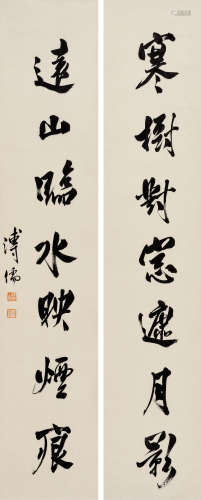 寒樹對窗遮月影
遠山臨水映煙痕
溥儒